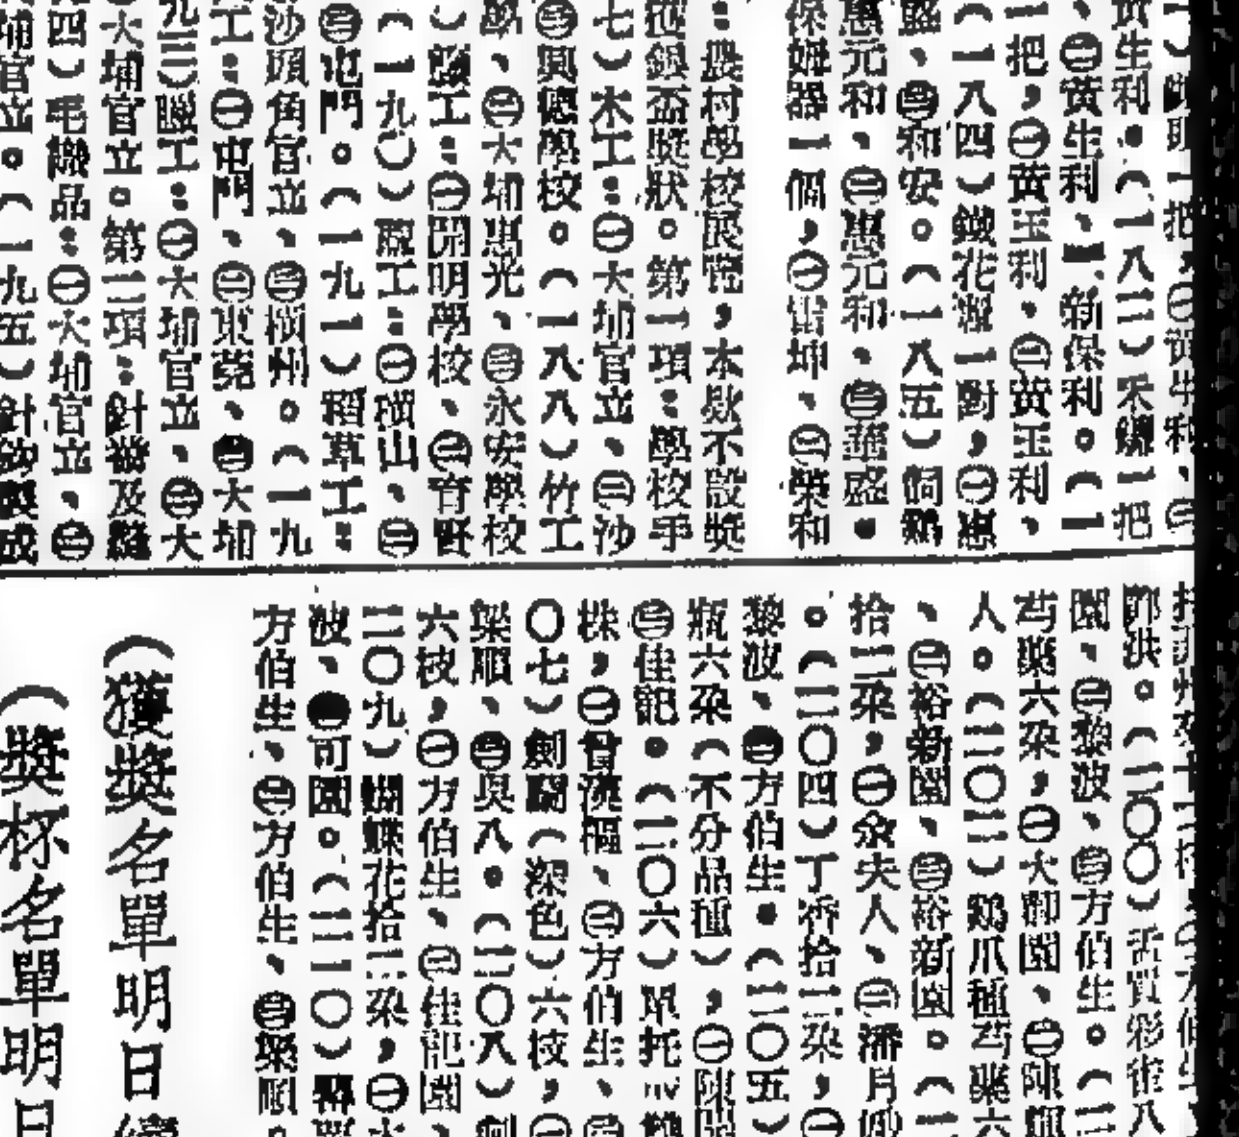 一把，㊀黃生利、㊁
黃生利。（一八二）禾鐮一把
、㊁黃生利、新保利。（一
一把，㊀黃玉利、㊁黃玉利、
（一八四）鐵花灑一對，㊀惠
盛、㊂和安。（一八五）銅鷄
惠元和、㊁惠元和、㊂華盛。
保姆器一個，㊀雷坤、㊁榮和
：農村學校展覽，本欵不設獎
銀盃獎狀。第一項：學校手
七）木工：㊀大埔官立、㊁沙
㊂興德學校。（一八八）竹工
學、㊁大埔惠光、㊂永安學校
）籐工：㊀開明學校、㊁育賢
（一九〇）工：㊀橫山、㊁
㊂屯門。（一九一）稻草工：
沙頭角官立、㊂橫州。（一九
工：㊀屯門、㊁東莞、㊂大埔
九三）工：㊀大埔官立、㊁大
大埔官立。第二項：針黹及縫
四）毛織品：㊀大埔官立、㊁
埔官立。（一九五）針鈎織成
鄧洪。（二〇〇）
園、㊁黎波、㊂方伯生。（二
芍藥六朶，㊀大御園、㊁陳
人。（二〇二）鷄爪種芍藥六
、㊁裕新園、㊂裕新園。（二
拾二朶，㊀余夫人、㊁潘月
。（二〇四）丁香拾二朶，㊀
黎波、㊂方伯生。（二〇五）
瓶六朶（不分品種），㊀陳
㊂佳記。（二〇六）單托
株，㊀曾漢樞、㊁方伯生、㊂
〇七）劍蘭（深色）六枝，㊀
榮順、㊂吳八。（二〇八）劍
六枝，㊀方伯生、㊁佳記園、
二〇九）蝴蝶花拾二朶，㊀
波、㊂可園。（二一〇）
方伯生、㊁方伯生、㊂榮順。
（獲獎名單明日續
（獎杯名單明日